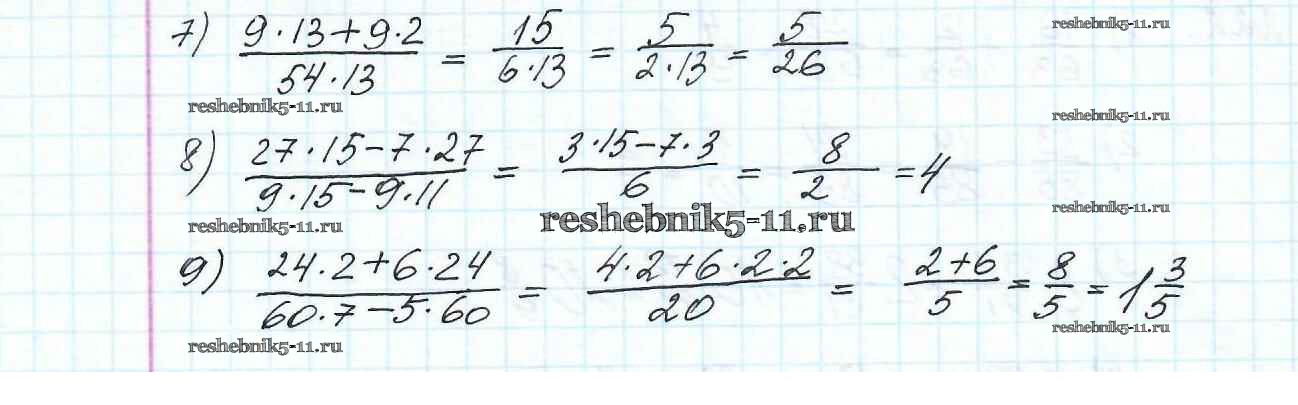 7) (9·13+9·2)/(54·13) = 15/(6·13) = 5/(2·13) = 5/26
reshebnik5-11.ru
reshebnik5-11.ru
reshebnik5-11.ru
8) (27·15-7·27)/(9·15-9·11) = (3·15-7·3)/6 = 8/2 = 4
reshebnik5-11.ru
reshebnik5-11.ru
reshebnik5-11.ru
9) (24·2+6·24)/(60·7-5·60) = (4·2+6·2·2)/20 = (2+6)/5 = 8/5 = 1 3/5
reshebnik5-11.ru
reshebnik5-11.ru